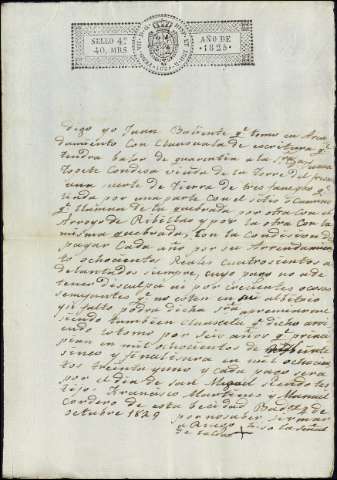 SELLO 4º
40. MRS
AÑO DE
1825
Digo yo Juan que tomo en Arren
damiento con Clausula de escritura q.e
tendra balor de quarentia a la
Condesa viuda de la Torre del
una suerte de Tierra de tres fanegas q.e
linda por una parte con el sitio
q.e llaman de la quebrada por otra con el
Arroyo de Ribillas y por la otra con la
misma quebrada, con la Condision de
pagar Cada año por su Arrendamien
to ochocientos Reales cuatrosientos a
delantados siempre, cuyo pago no a de
tener desculpa ni por crecientes ocasos
semejantes q.e no esten en mi albitrio
y si falto podra dicha sra
siendo tambien Clausula q.e dicho arri
endo lo tomo por seis años q.e prinsi
pean en mil ochosientos de beinte
sinco y finalisera en mil ochosien
tos treinta y uno y cada pago sera
por el dia de san Migael siendo tes
tigo: Francisco Martines y Manuel
Cordero de esta becidad
octubre 1829
por no saber firmar
a Ruego iso la señal
de la cruz +